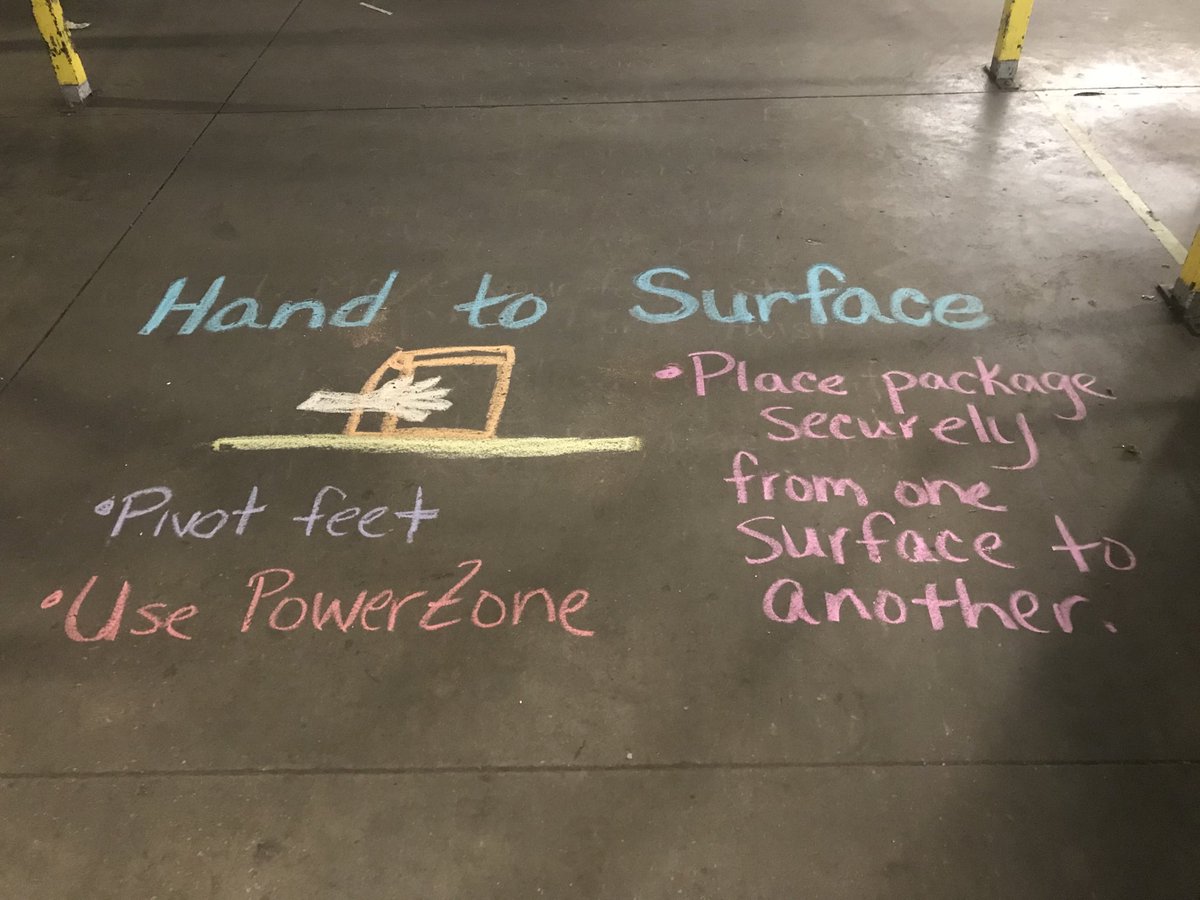 Hand to Surface
• Place package
securely
from one
surface to
another.
• Pivot feet
• Use PowerZone